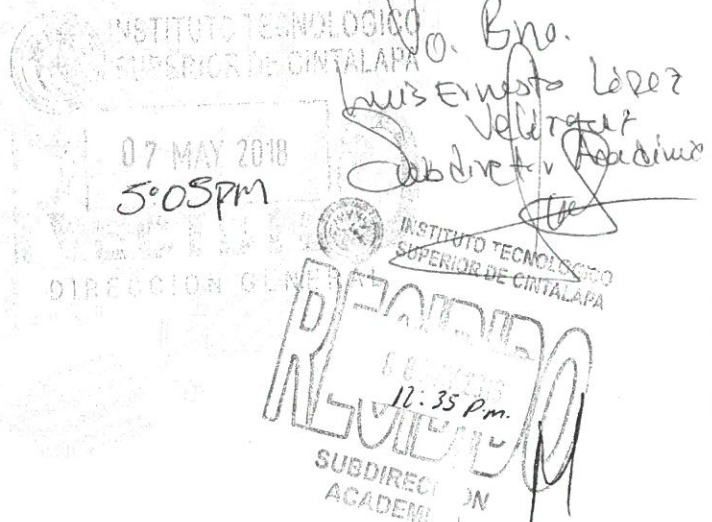 INSTITUTO TECNOLOGICO
SUPERIOR DE CINTALAPA
07 MAY 2018
5:05pm
DIRECCION GENERAL
Vo. Bno.
Luis Ernesto López
Velázquez
Subdirector Académico
INSTITUTO TECNOLOGICO
SUPERIOR DE CINTALAPA
RECIBIDO
12:35 p.m.
SUBDIRECCION
ACADEMI